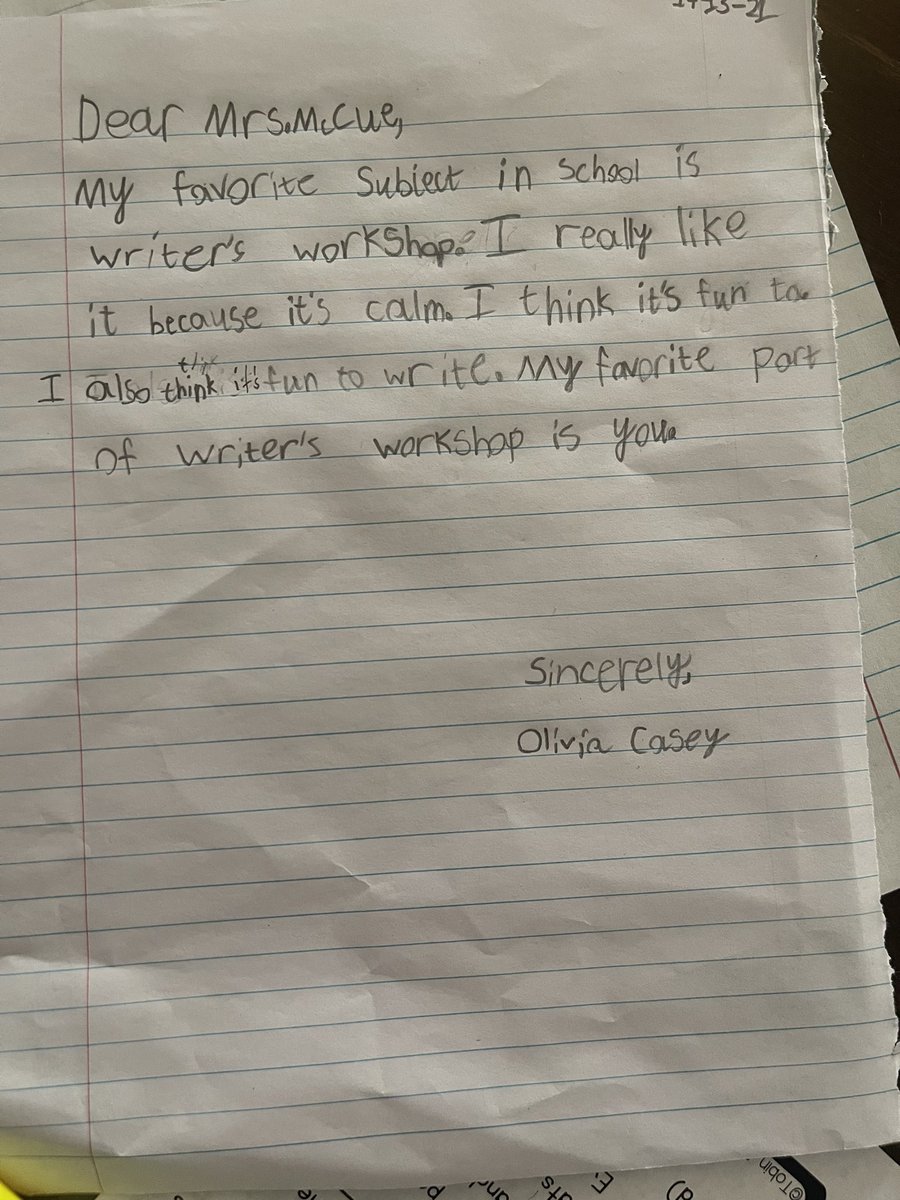 Dear Mrs.McCue,
My favorite Subject in school is
writer's workshop. I really like
it because it's calm. I think it's fun to.
I also think it's fun to write. My favorite part
of writer's workshop is you.
Sincerely,
Olivia Casey
@Tobin